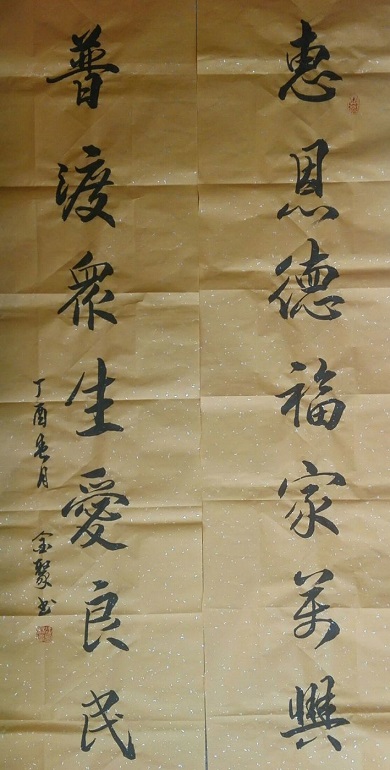 惠恩德福家萬興
普渡眾生愛良民
丁酉春月 金賢书